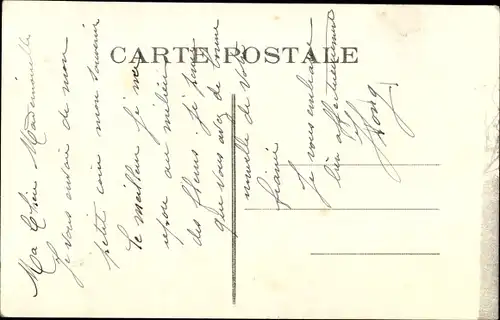 CARTE POSTALE
Ma Chère Mademoiselle
je vous envoie de mon
petit coin mon souvenir
le meilleur je me
repose au milieu
des fleurs je pense
que vous avez de bonne
nouvelle de votre
Je vous embrasse
bien affectueusement